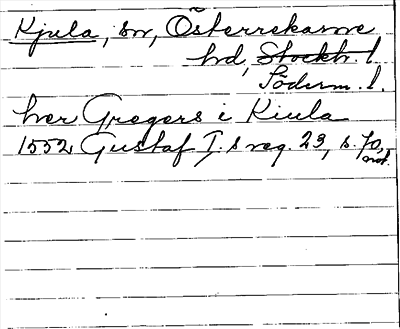 Kjula, sn, Österrekarne
hd, Stockh. l.
Söderm. l.
her Gregers i Kiula
1552 Gustaf I:s reg. 23, s. 70,
not.